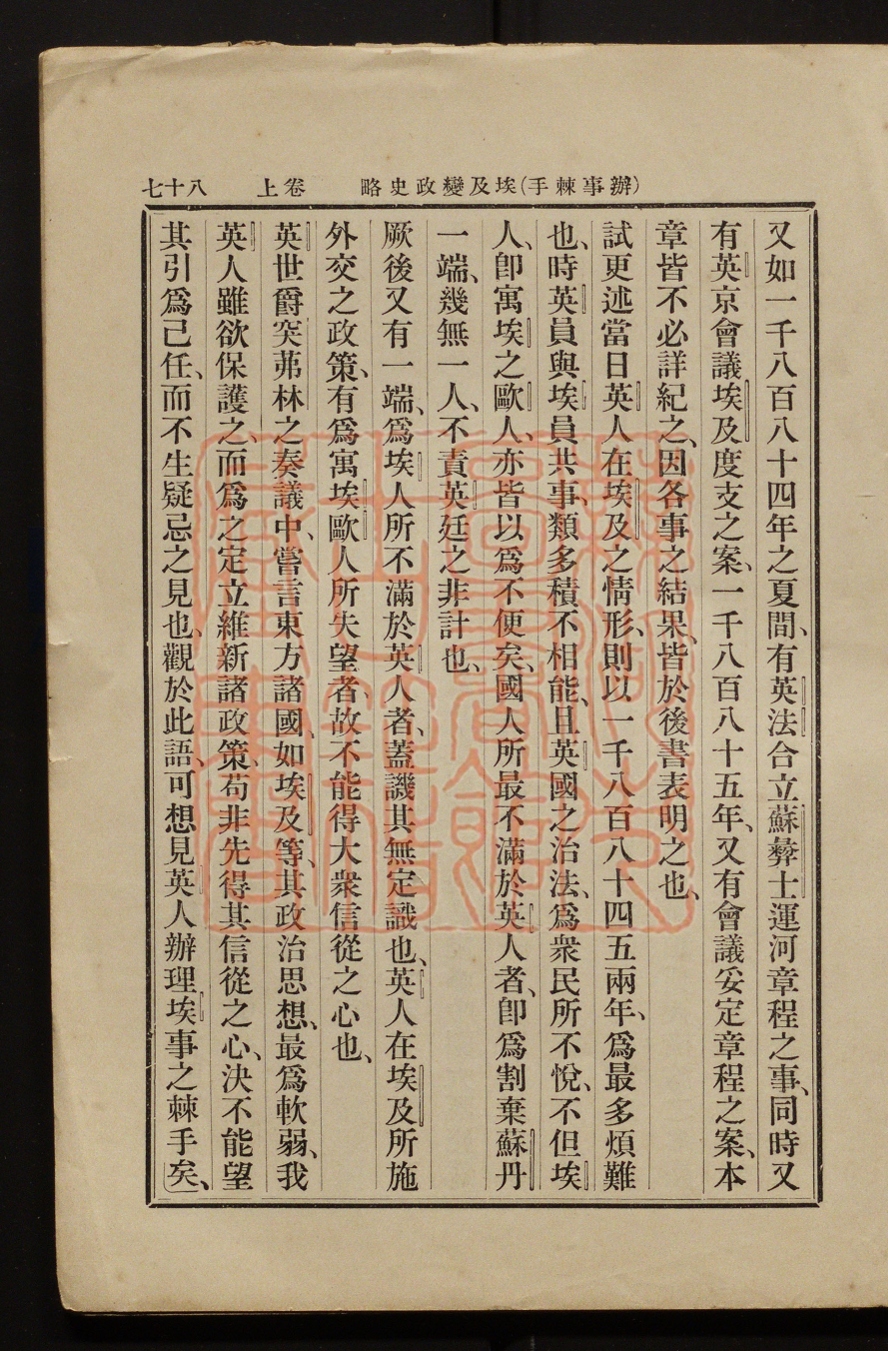 （辦事棘手）埃及變政史略　卷上　八十七
又如一千八百八十四年之夏間、有英法合立蘇彝士運河章程之事、同時又
有英京會議埃及度支之案、一千八百八十五年、又有會議妥定章程之案、本
章皆不必詳紀之、因各事之結果、皆於後書表明之也、
試更述當日英人在埃及之情形、則以一千八百八十四五兩年、爲最多煩難
也、時英員與埃員共事、類多積不相能、且英國之治法、爲衆民所不悅、不但埃
人、卽寓埃之歐人、亦皆以爲不便矣、國人所最不滿於英人者、卽爲割棄蘇丹
一端、幾無一人、不責英廷之非計也、
厥後又有一端、爲埃人所不滿於英人者、蓋譏其無定識也、英人在埃及所施
外交之政策、有爲寓埃歐人所失望者、故不能得大衆信從之心也、
英世爵突茀林之奏議中、嘗言東方諸國、如埃及等、其政治思想、最爲軟弱、我
英人雖欲保護之、而爲之定立維新諸政策、苟非先得其信從之心、決不能望
其引爲己任、而不生疑忌之見也、觀於此語、可想見英人辦理埃事之棘手矣、